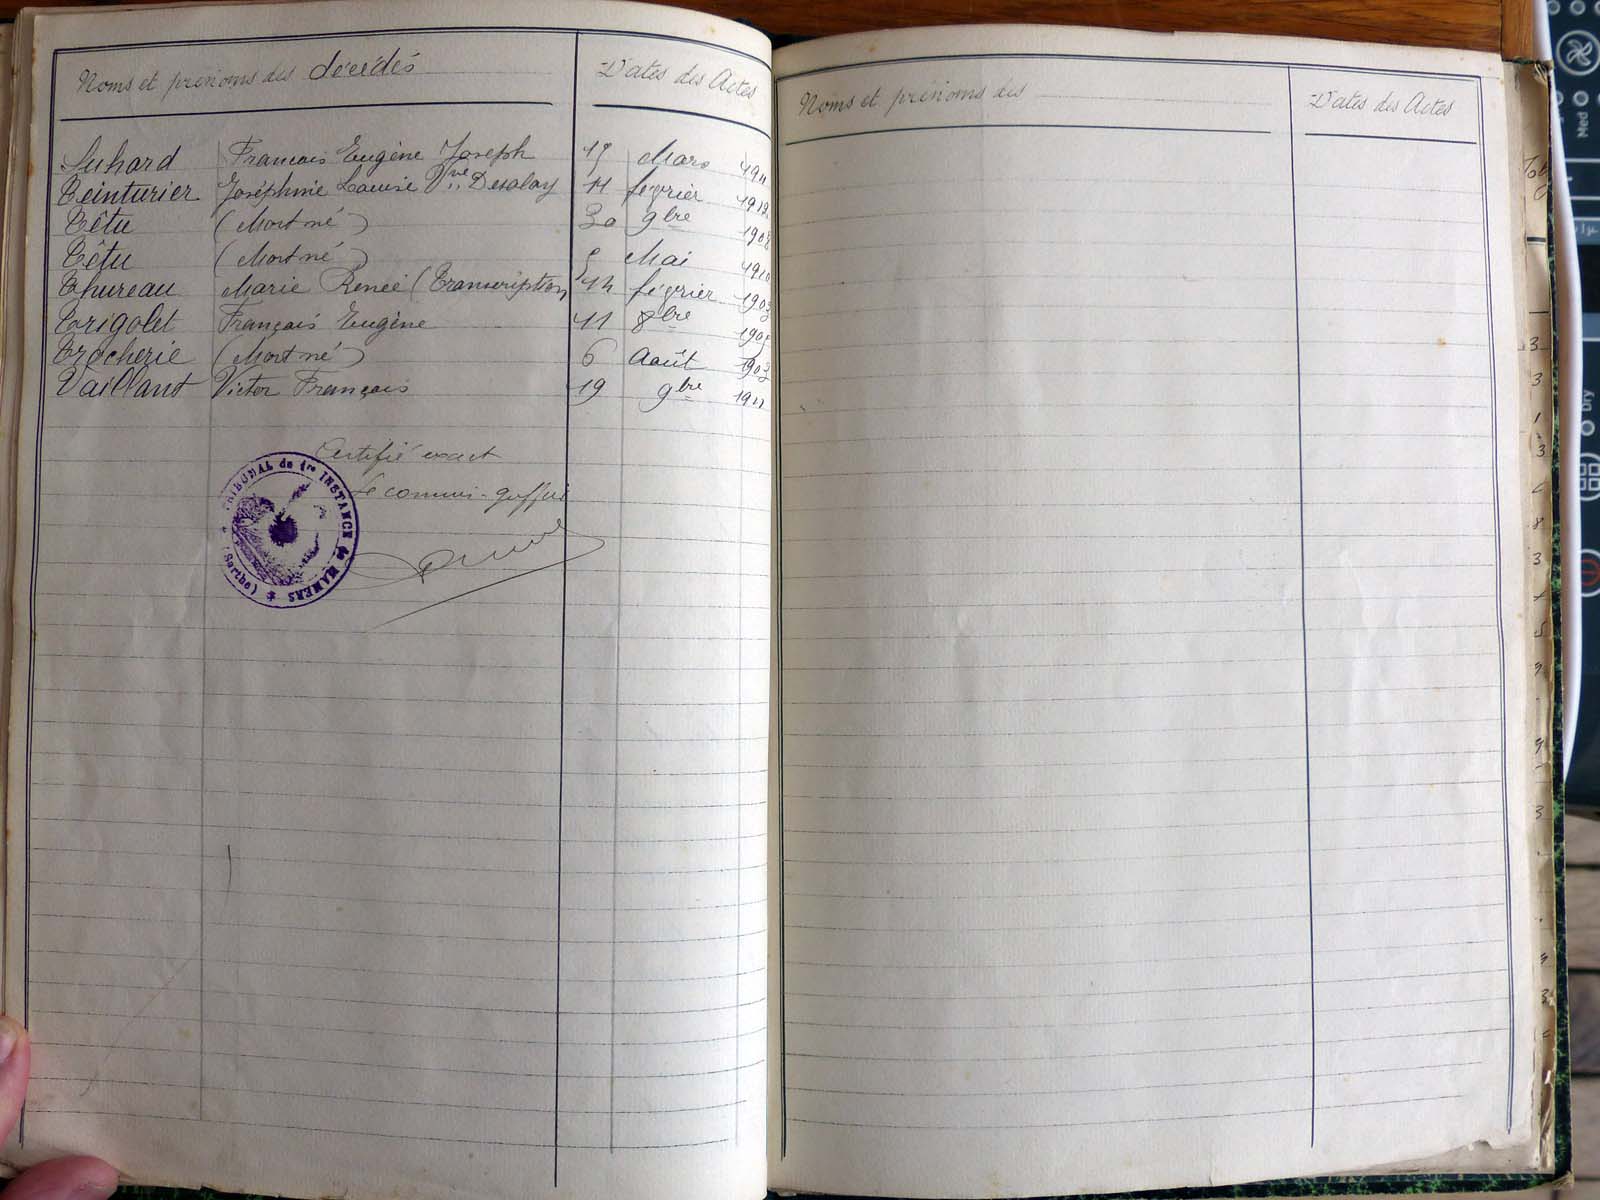 Noms et prénoms des décédés Dates des Actes
Suhard François Eugène Joseph 19 Mars 1911
Teinturier Joséphine Louise Vve Desalay 11 février 1912
Têtu (Mort né) 30 9bre 1908
Têtu (Mort né) 5 Mai 1910
Thureau Marie Renée (Transcription) 14 février 1903
Trigolet François Eugène 11 8bre 1905
Trocherie (Mort né) 6 Août 1903
Vaillant Victor François 19 9bre 1911
Certifié exact
Le commis-greffier
TRIBUNAL de 1re INSTANCE de MAMERS
(Sarthe)
Noms et prénoms des Dates des Actes
Med
Dry